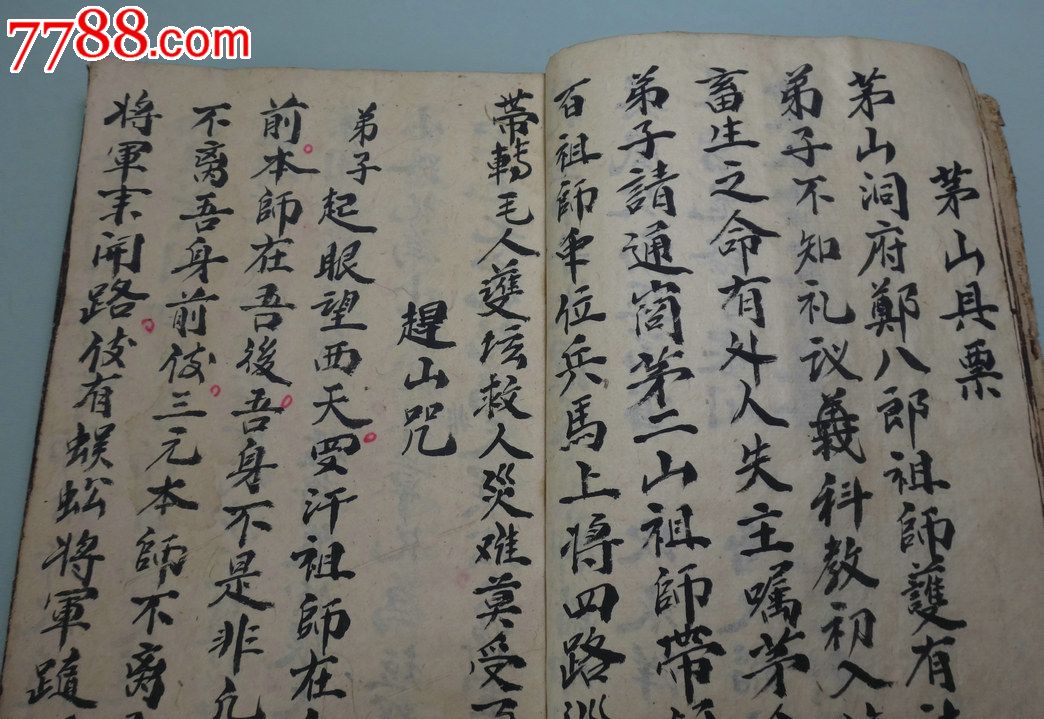 7788.com
茅山具票
茅山洞府鄭八郎祖師護有
弟子不知礼议義科教初入
畜生之命有外人失主嘱茅
弟子請通窗茅二山祖師帶
百祖師車位兵馬上將四路巡
帶轉毛人護坛救人災难莫受百
趕山咒
弟子起眼望西天
祖師在
前本師在吾後吾身不是非凡
不离吾身前
三元本師不离
將軍来開路
有蜈蚣將軍隨